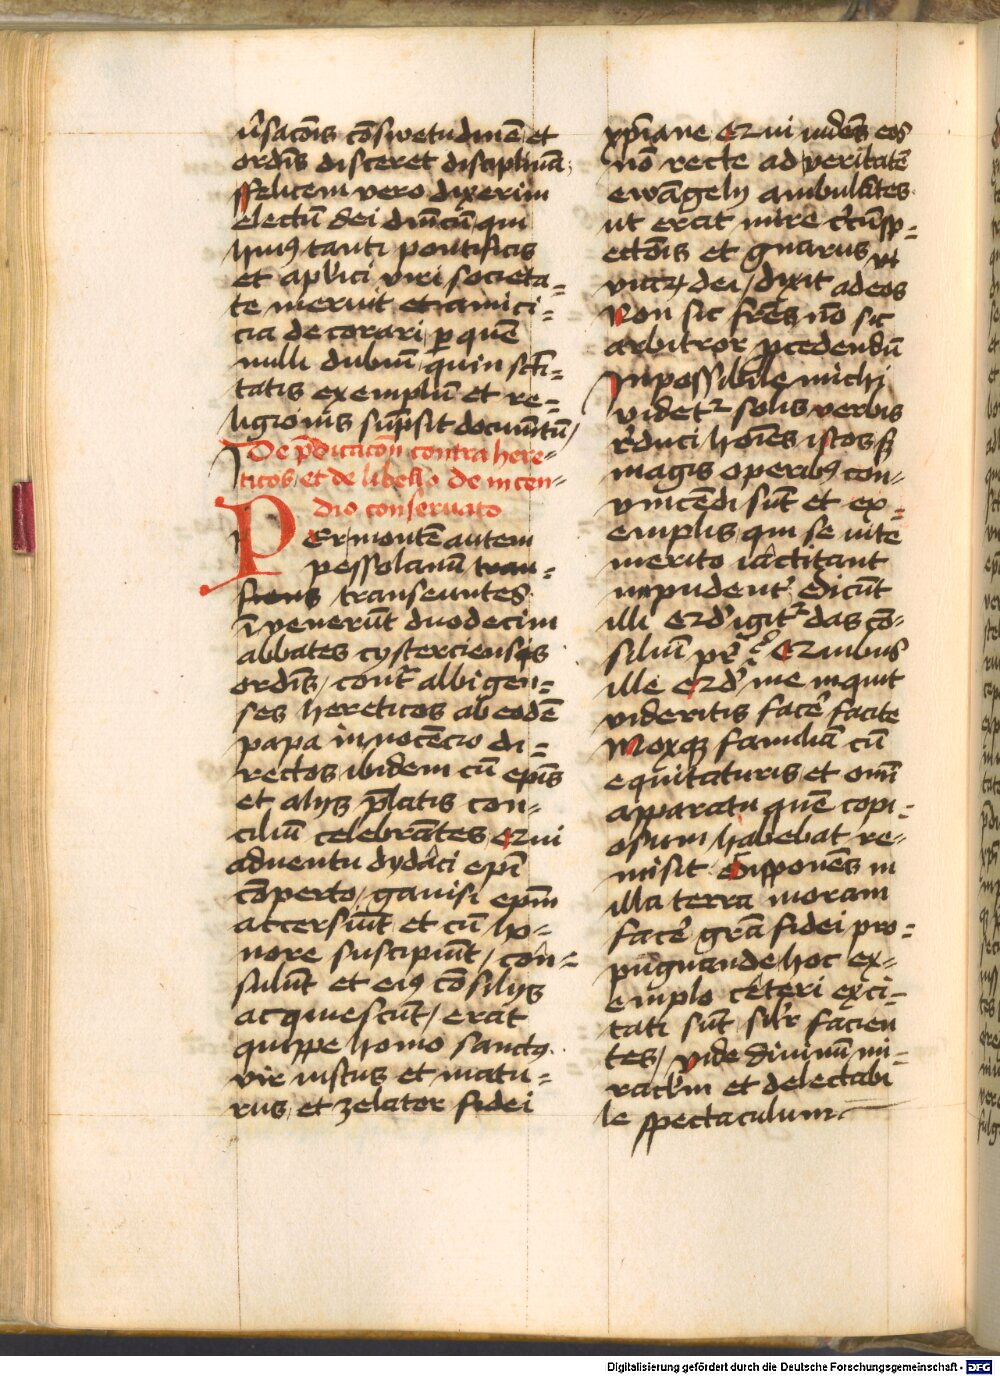 ūsacōis cōswetudinē et
ordīs disceret disciplinā
ffelicem vero dixerim
electū dei dn̄icū qui
huiꝰ tanti pontificis
et apl'ici viri societa=
te meruit et amici=
cia decorari p quē
nulli dubiū quin scti=
tatis exemplū et re=
ligionis sūpsit documtū
De p̄dicacōn contra here=
ticos et de libello de incen=
dio conservato
Per montē autem
pessolanū tran=
siens transeuntes
īvenerūt duodecim
abbates cysterciensis
ordīs cont̄ albigen=
ses hereticos ab eodē
papa innocēcio di=
rectos ibidem cū epīs
et alijs p̄latis con=
ciliū celebrātes Qui
adventu dydaci epī
cōperto gavisi epm̄
accersiūt et cū ho=
nore suscipiūt con=
sulūt et eiꝰ cōsilijs
acquiescūt erat
quippe homo sanctꝰ
vir iustus et matu=
rus et zelator fidei
xp̄iane Qui vidēs eos
nō recte ad veritatē
ewāgelij ambulātes
ut erat mire c̄cūsp=
ectōis et gnarus
viaꝝ dei dixit ad eos
Non sic frēs nō sic
arbitror p̄cedendū
Inpossibile michi
videt᷑ solis verbis
r̄duci hoīes istos sꝫ
magis operibꝰ con=
vincēdi sūt et ex=
emplis qui se vite
merito iactitant
inpudent᷑ Dicūt
illi Qd igit᷑ das cō=
siliū pr̄ Quibus
ille Qd me inquit
videritis facē facite
Moxqꝫ familiā cū
equitaturis et omī
apparatu quē copi=
osum habebat re=
misit Disponēs in
illa terra moram
facē grā fidei pro=
pugnande hoc ex=
emplo cēteri exci=
tati sūt sil'r facien
tes vide divinū mi=
rac'lm et delectabi
le spectaculum
Digitalisierung gefördert durch die Deutsche Forschungsgemeinschaft - DFG